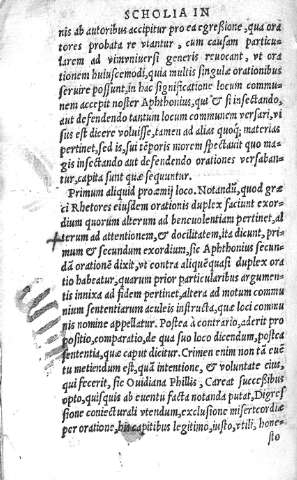 SCHOLIA IN
nis ab autoribus accipitur pro ea egreßione, qua ora
tores probata re vtantur, cum causam particu
larem ad vniuuersi generis reuocant, vt ora
tionem huiuscemodi, quia multis singulæ orationibus
seruire possunt, in hac significatione locum commu-
nem accepit noster Aphthonius, qui & si insectando,
aut defendendo tantum locum communem versari, vi
sus est dicere voluisse, tamen ad alias quoq; materias
pertinet, sed is, sui tẽporis morem spectauit quo ma-
gis insectando aut defendendo orationes versaban-
tur, capita sunt quæ sequuntur.
Primum aliquid proœmij loco. Notandũ, quod græ
ci Rhetores eiusdem orationis duplex faciunt exor-
dium quorum alterum ad beneuolentiam pertinet, al
terum ad attentionem, & docilitatem, ita dicunt, pri-
mum & secundum exordium, sic Aphthonius secun-
dã orationẽ dixit, vt contra aliquẽquasi duplex ora
tio habeatur, quarum prior particularibus argumen-
tis innixa ad fidem pertinet, altera ad motum commu
nium sententiarum aculeis instructa, quæ loci commu
nis nomine appellatur. Postea à contrario, aderit pro
positio, comparatio, de qua suo loco dicendum, postea
sententia, quæ caput dicitur. Crimen enim non tã eue
tu metiendum est, quã intentione, & voluntate eius,
qui fecerit, sic Ouidiana Phillis, Careat successibus
opto, quisquis ab euentu facta notanda putat, Digres
sione coniecturali vtendum, exclusione misericordiæ
per oratione, his capitibus legitimo, iusto, vtili, hone-
sto